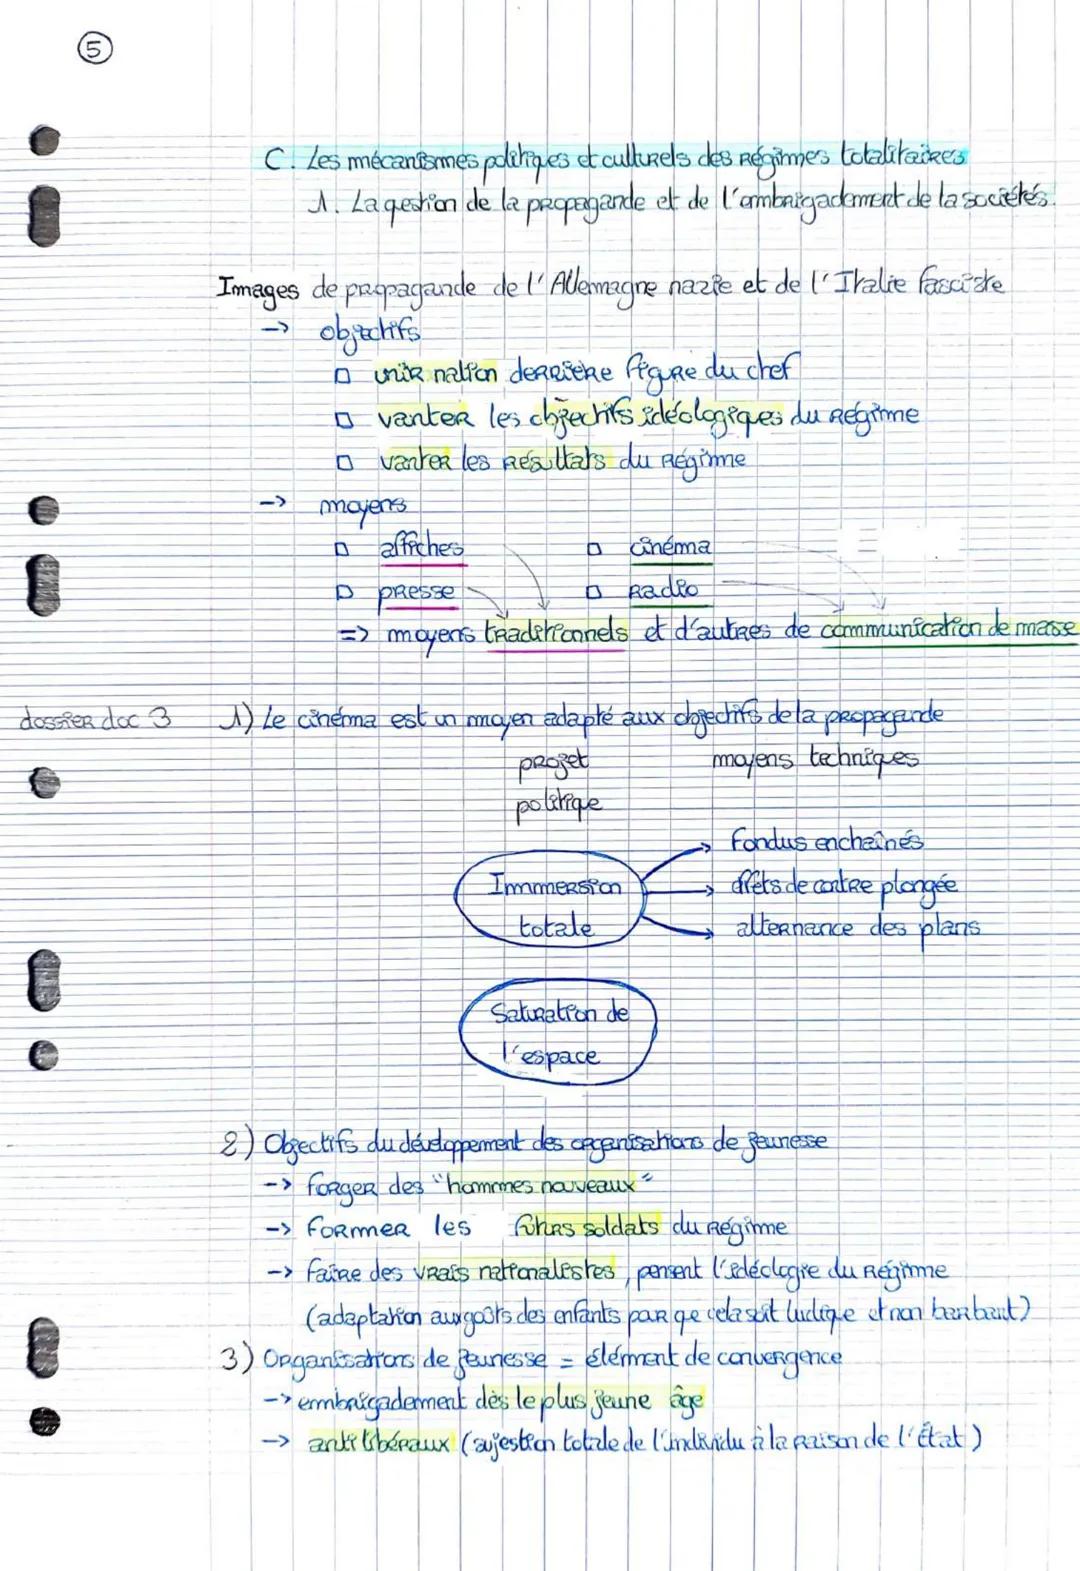 5
C. Les mécanismes politiques et culturels des régimes totalitaires
1. La gestion de la propagande et de l'embrigadement de la sociétés.
Images de propagande de l'Allemagne nazie et de l'Italie fasciste
-> objectifs
□ unir nation derrière figure du chef
□ vanter les objectifs idéologiques du régime
□ vanter les résultats du régime
-> moyens
□ affiches □ cinéma
□ presse □ radio
=> moyens traditionnels et d'autres de communication de masse
dossier doc 3 1) Le cinéma est un moyen adapté aux objectifs de la propagande
projet moyens techniques
politique
Immmersion
totale
fondus enchaînés
effets de contre plongée
alternance des plans
Saturation de
l'espace
2) Objectifs du développement des organisations de jeunesse
-> forger des "hommes nouveaux"
-> former les futurs soldats du régime
-> faire des vrais nationalistes, pensent l'idéologie du régime
(adaptation aux goûts des enfants par que cela soit ludique et non barbant)
3) Organisations de jeunesse = élément de convergence
-> embrigadement dès le plus jeune âge
-> anti libéraux (sujestion totale de l'individu à la raison de l'État)